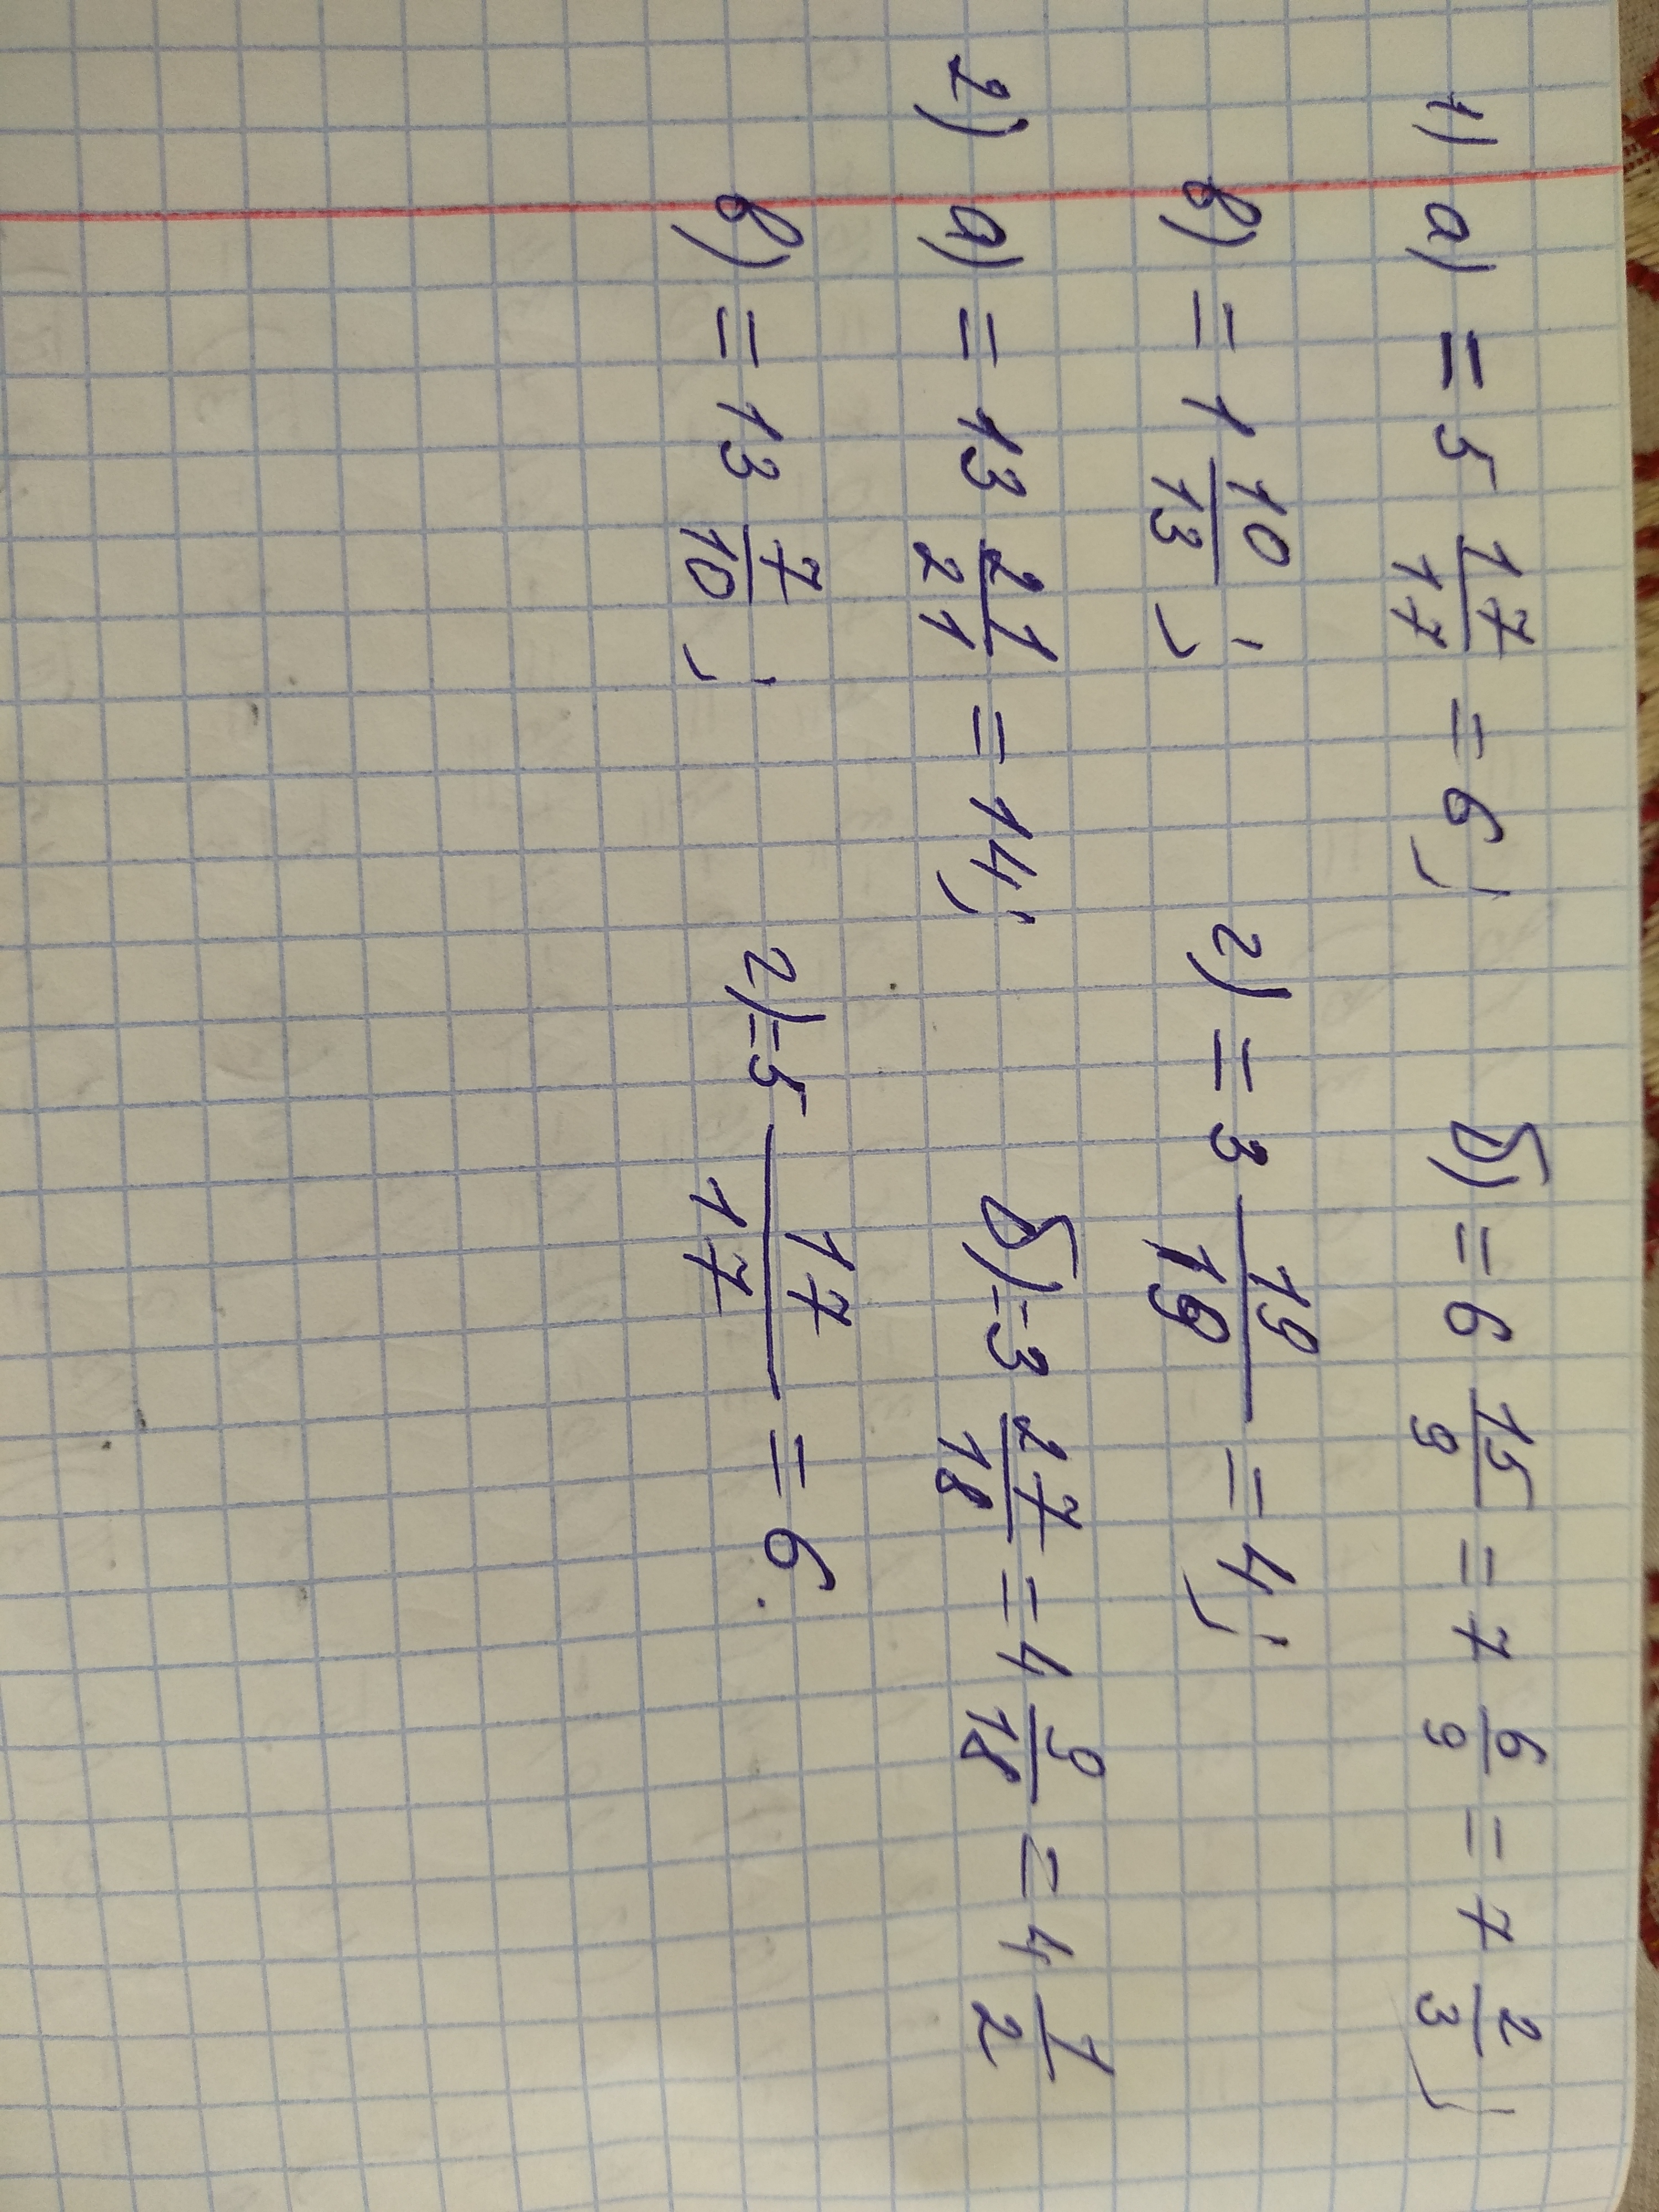 1) а) = 5 17/17 = 6; б) = 6 15/9 = 7 6/9 = 7 2/3;
в) = 1 10/13; г) = 3 19/19 = 4;
2) а) = 13 21/21 = 14; б) = 3 27/18 = 4 9/18 = 4 1/2
в) = 13 7/10; г) = 5 17/17 = 6.